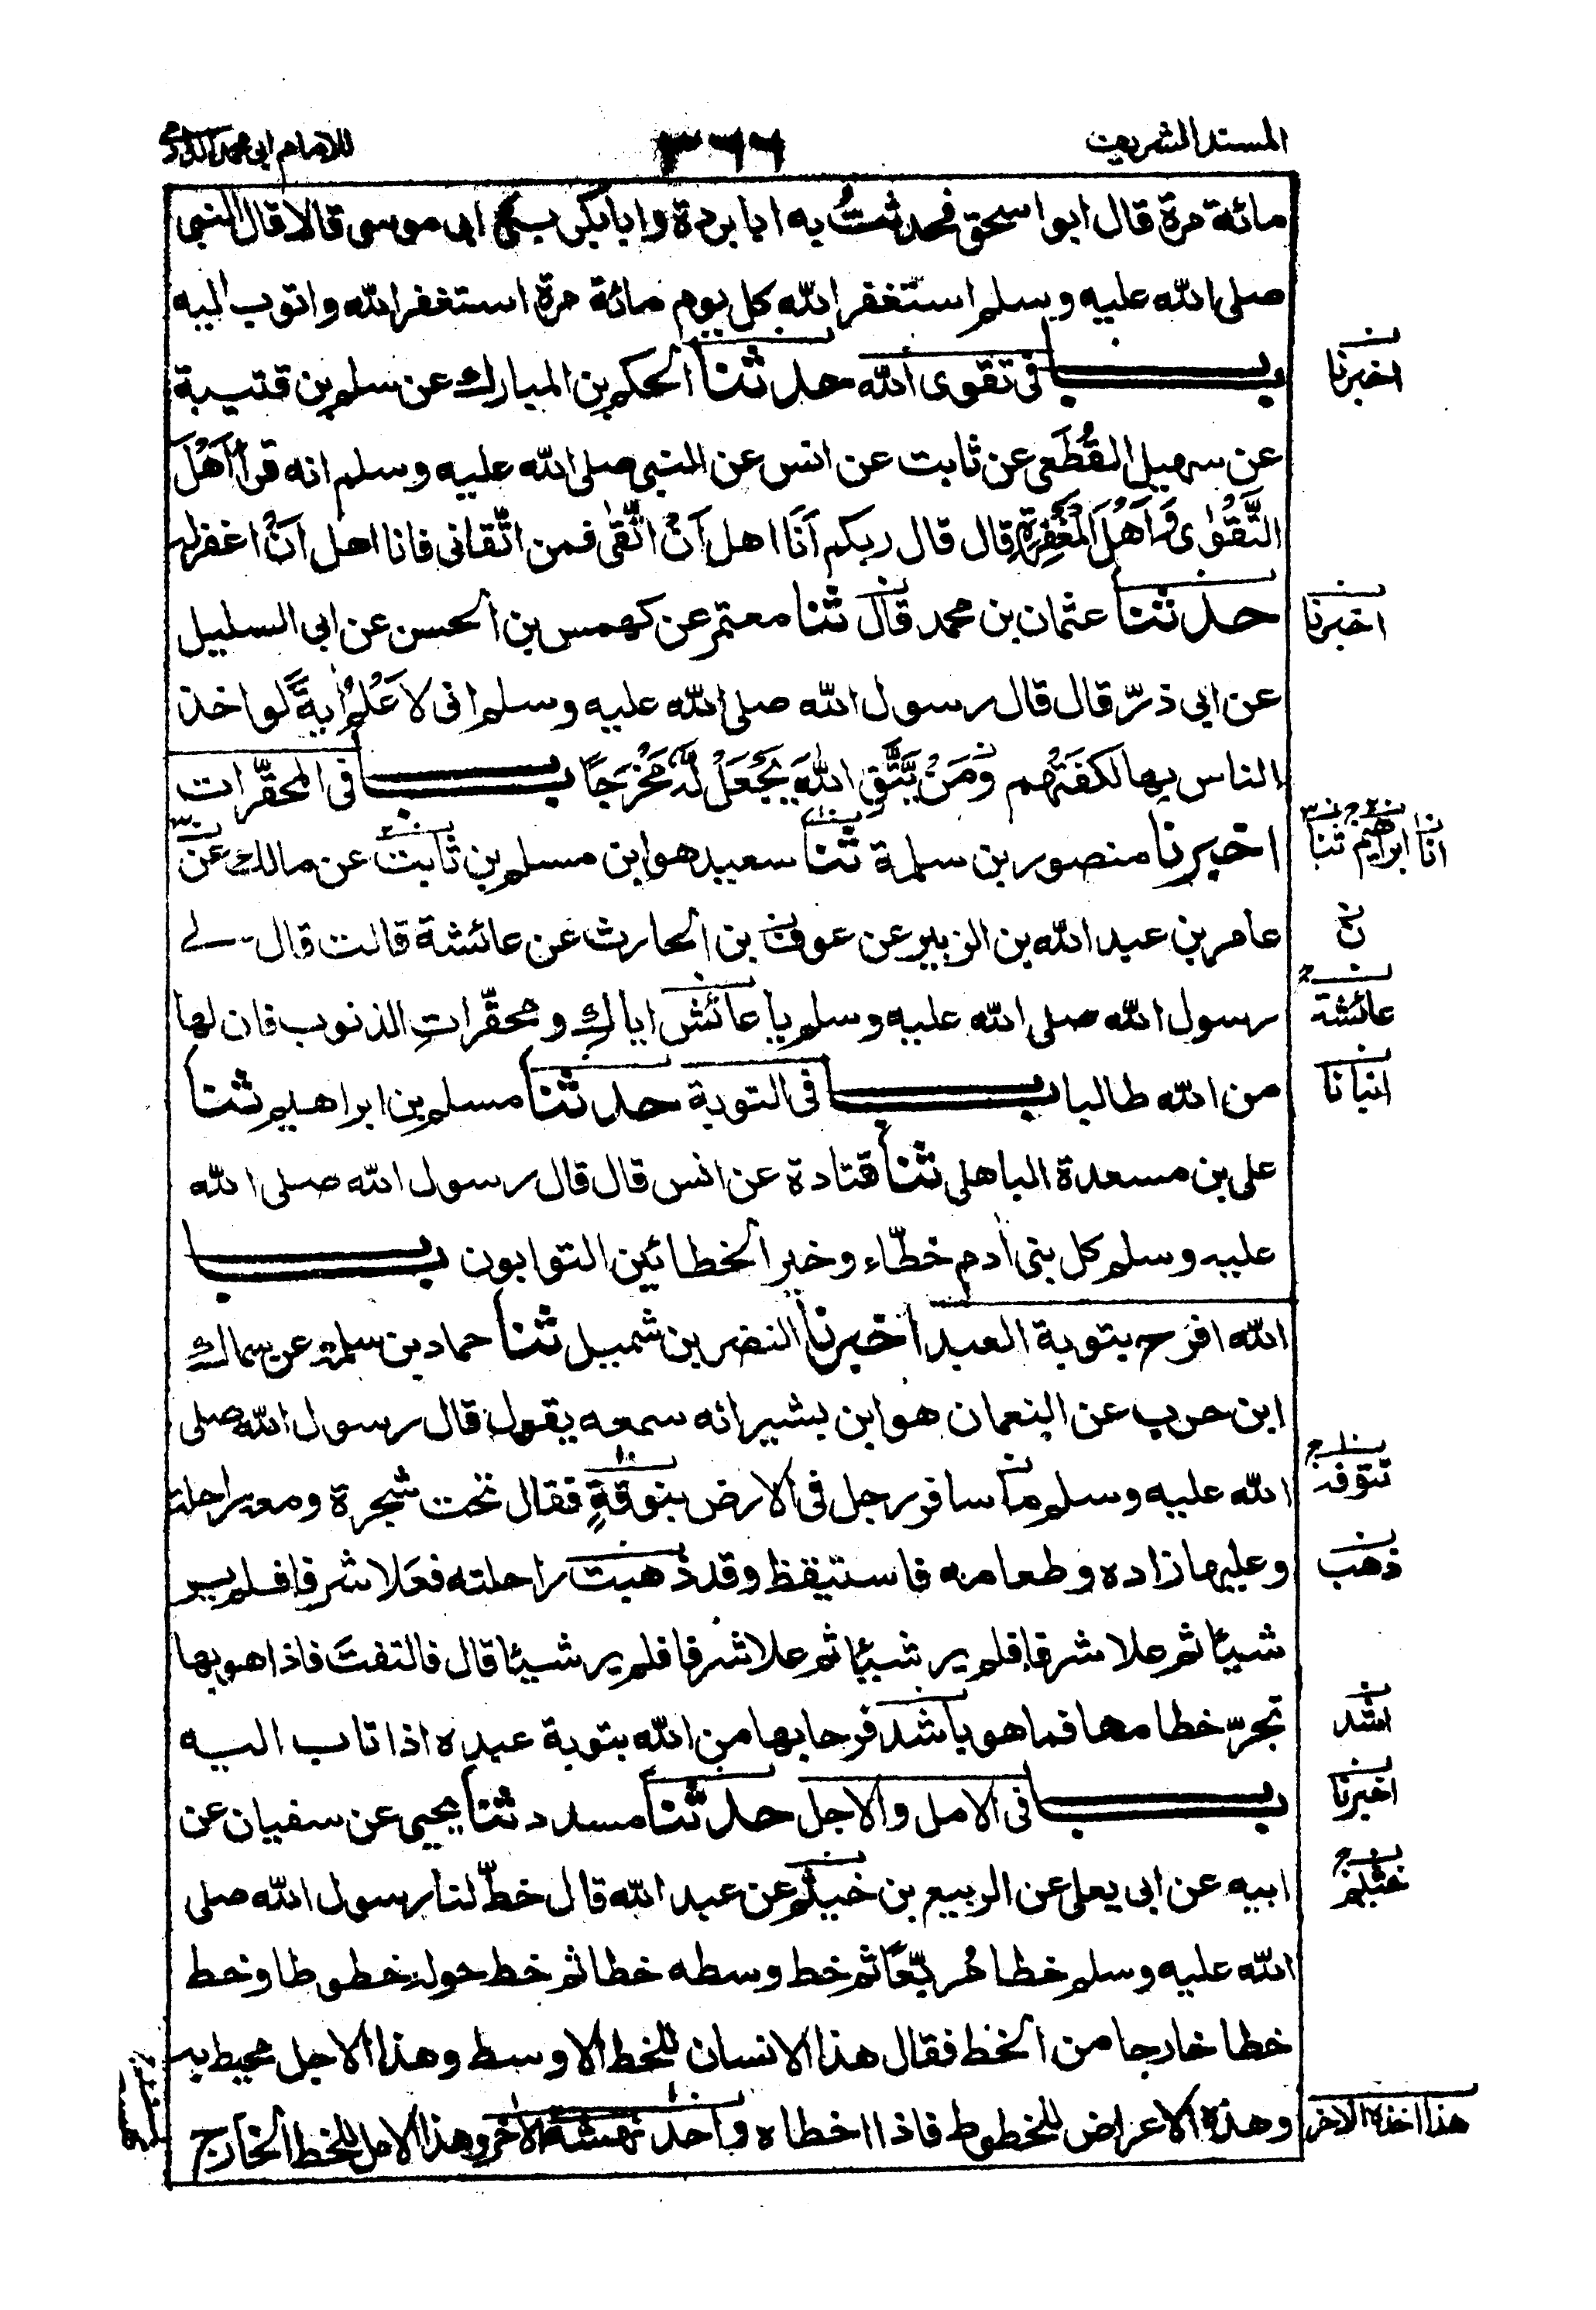 المسند الشريف ٣٦٦ للامام ابى محمد الدارمى
مائة مرة قال ابو اسحق فحدثتُ به ابا بردة وابا بكر بنى ابى موسى قالا قال النبى
صلى الله عليه وسلم استغفر الله كل يوم مائة مرة استغفر الله واتوب اليه
باب فى تقوى الله حدثنا الحكم بن المبارك عن سلم بن قتيبة
اخبرنا
عن سهيل القُطَعى عن ثابت عن انس عن النبى صلى الله عليه وسلم انه قرأ اَهْلَ
التَّقْوٰى وَاَهْلَ الْمَغْفِرَةِ قال قال ربكم اَنَا اهل اَنْ اتَّقٰى فمن اتّقانى فانا اهل اَنْ اغفر له
حدثنا عثمان بن محمد قال ثنا معتمر عن كهمس بن الحسن عن ابى السليل
اخبرنا
عن ابى ذرّ قال قال رسول الله صلى الله عليه وسلم انى لاَعْلَمُ اٰيةً لو اخذ
الناس بها لكفَتْهم وَمَنْ يَّتَّقِ اللهَ يَجْعَلْ لَّهٗ مَخْرَجًا باب فى المحقّرات
اخبرنا منصور بن سلمة ثنا سعيد هو ابن مسلم بن ثابت عن مالك عن
انا ابراهيم ثنا
عامر بن عبد الله بن الزبير عن عوف بن الحارث عن عائشة قالت قال لے
ن
رسول الله صلى الله عليه وسلم يا عائش اياك ومحقّراتِ الذنوب فان لها
عائشة
من الله طالبا باب فى التوبة حدثنا مسلم بن ابراهيم ثنا
انبانا
على بن مسعدة الباهلى ثنا قتادة عن انس قال قال رسول الله صلى الله
عليه وسلم كل بنى اٰدم خطّاء وخير الخطائين التوابون باب
الله افرح بتوبة العبد اخبرنا النضر بن شميل ثنا حماد بن سلمة عن سماك
ابن حرب عن النعمان هو ابن بشير انه سمعه يقول قال رسول الله صلى
الله عليه وسلم ما سافر رجل فى الارض بنوقةٍ فقال تحت شجرة ومعه راحلته
تنوفة
وعليها زاده وطعامه فاستيقظ وقد ذهبت راحلته فعَلا شرفا فلم ير
ذهب
شيئا ثم علا شرفا فلم ير شيئا ثم علا شرفا فلم ير شيئا قال فالتفتَ فاذا هو بها
تجرّ خطامها فما هو باشد فرحا بها من الله بتوبة عبده اذا تاب اليه
اشد
باب فى الامل والاجل حدثنا مسدد ثنا يحيى عن سفيان عن
اخبرنا
ابيه عن ابى يعلى عن الربيع بن خيثم عن عبد الله قال خطّ لنا رسول الله صلى
خثيم
الله عليه وسلم خطا مُربّعًا ثم خط وسطه خطا ثم خط حوله خطوطا وخط
خطا خارجا من الخط فقال هذا الانسان للخط الاوسط وهذا الاجل محيط به
وهذه الاعراض للخطوط فاذا اخطاه واحد نهشه الاٰخر وهذا الامل للخط الخارج
هذا اخذه الاخر